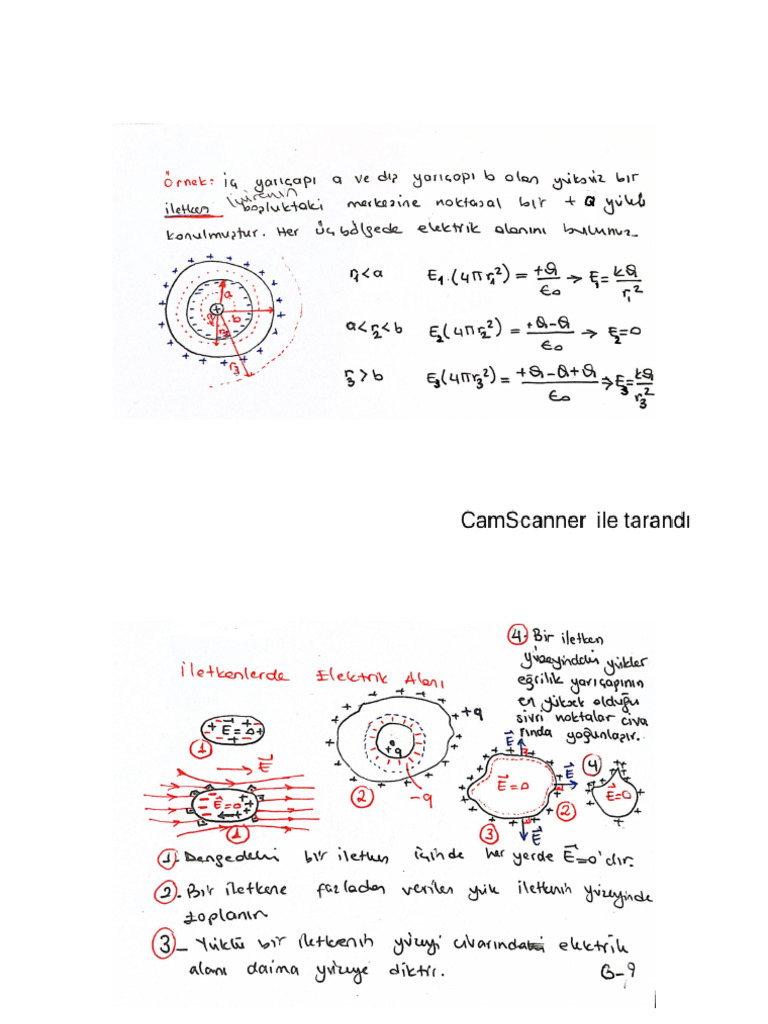 Örnek: iç yarıçapı a ve dış yarıçapı b olan yüksüz bir
iletken kürenin boşluktaki merkezine noktasal bir +Q yükü
konulmuştur. Her üç bölgede elektrik alanını bulunuz.
r₁<a E₁.(4πr₁²) = +Q/ε₀ → E₁ = kQ/r₁²
a<r₂<b E₂(4πr₂²) = +Q-Q/ε₀ → E₂=0
r₃>b E₃(4πr₃²) = +Q-Q+Q/ε₀ → E₃ = kQ/r₃²
a
b
r₂
r₃
CamScanner ile tarandı
İletkenlerde Elektrik Alanı
④- Bir iletken
yüzeyindeki yükler
eğrilik yarıçapının
en yüksek olduğu
sivri noktalar civa
rında yoğunlaşır.
E=0
①
E
E=0
①
+q
+q
-q
②
E
E
E
E=0
②
③
④
E=0
①- Dengedeki bir iletken içinde her yerde E=0'dır.
②- Bir iletkene fazladan verilen yük iletkenin yüzeyinde
toplanır
③- Yüklü bir iletkenin yüzeyi civarındaki elektrik
alanı daima yüzeye diktir.
G-9